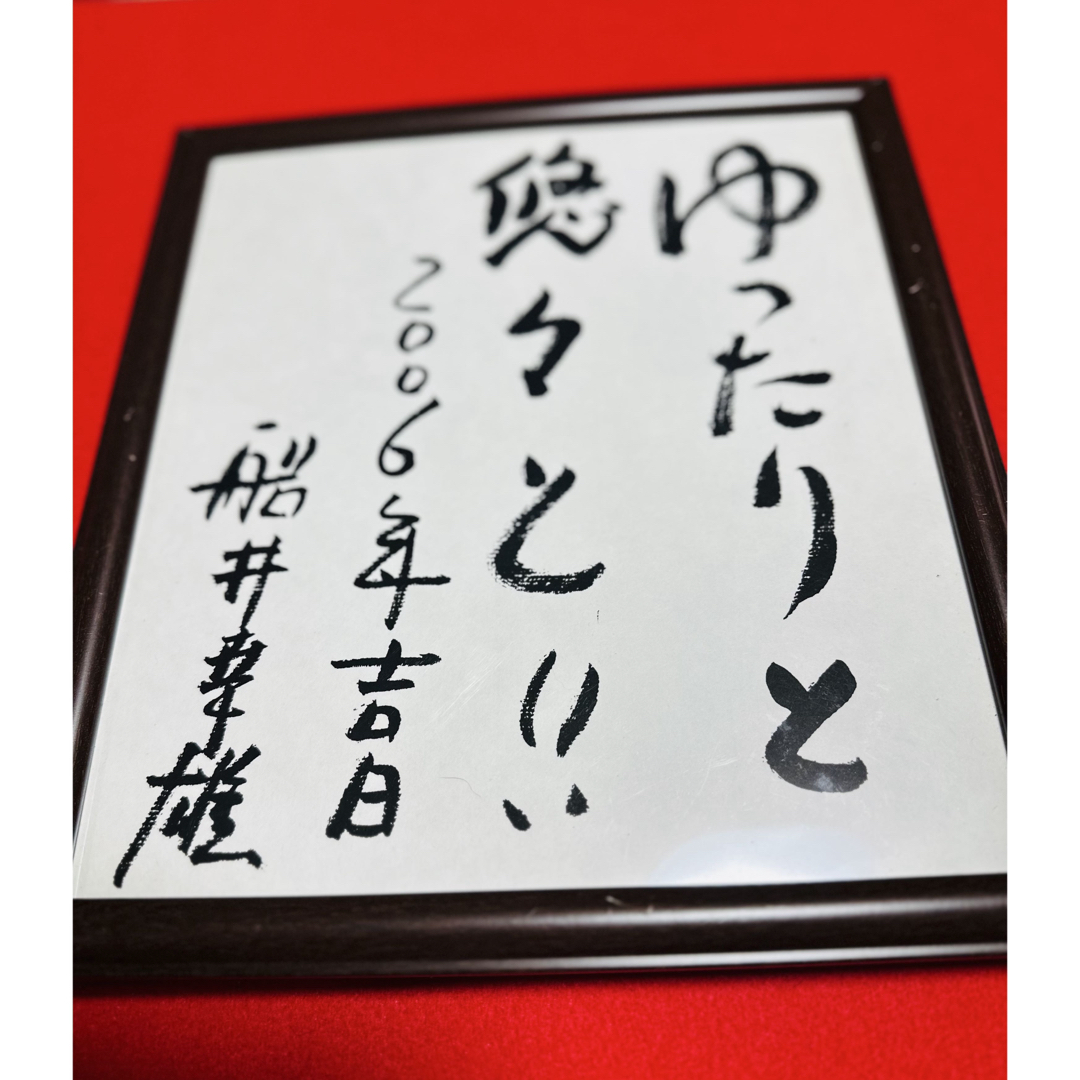 ゆったりと
悠々と
2006年吉日
船井幸雄